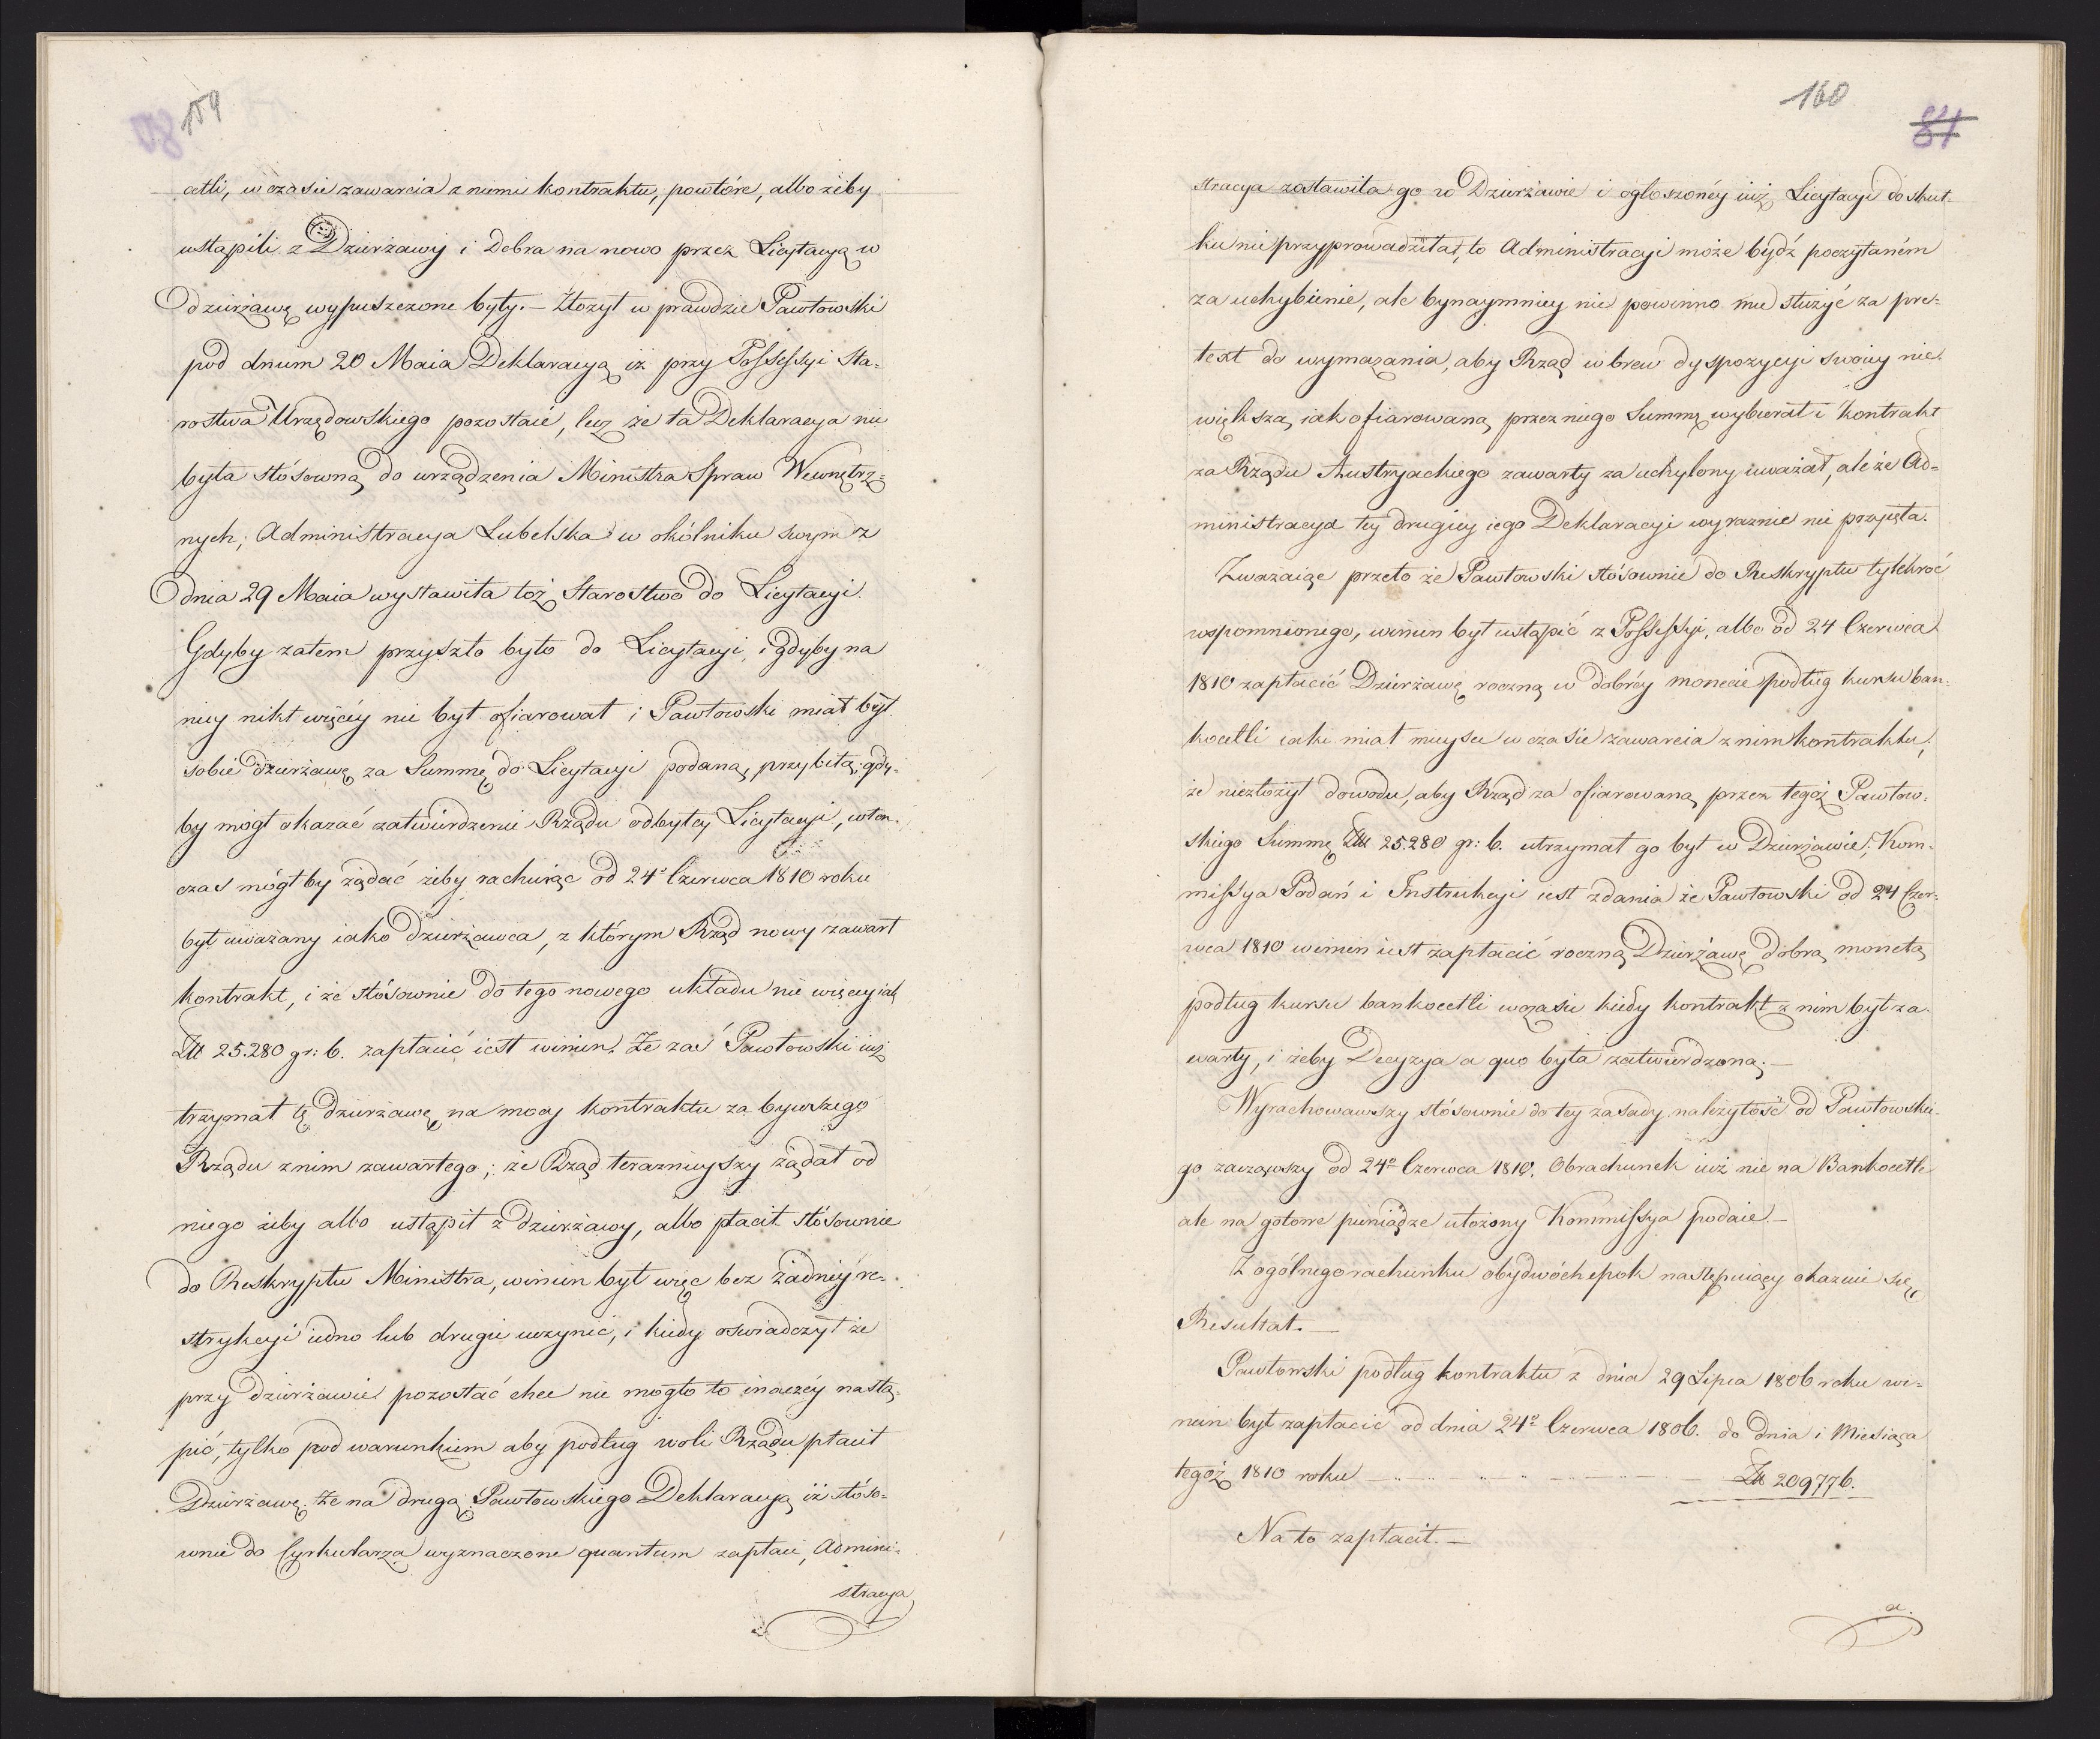 159
80
cetli, w czasie zawarcia z niemi kontraktu, powtóre, albo żeby
ustąpili z Dzierżawy i Dobra na nowo przez Licytacyą w
dzierżawę wypuszczone były. — Złożył w prawdzie Pawłowski
pod dniem 20 Maia Deklaracyą iż przy Possessyi Sta-
rostwa Urzędowskiego pozostaie, lecz że ta Deklaracya nie
była stósowną do urządzenia Ministra Spraw Wewnętrz-
nych; Administracya Lubelska w okólniku swym z
dnia 29 Maia wystawiła toż Starostwo do Licytacyi.
Gdyby zatem przyszło było do Licytacyi, i gdyby na
niey nikt więcéy nie był ofiarował i Pawłowski miał był
sobie dzierżawę za Summę do Licytacyi podaną, przybitą, gdy-
by mógł okazać zatwierdzenie Rządu odbytey Licytacyi, wten-
czas mógłby żądać żeby rachuiąc od 24º Czerwca 1810 roku
był uważany iako dzierżawca, z którym Rząd nowy zawarł
kontrakt, i że stósownie do tego nowego układu nie więcey iak
Złł 25.280 gr: 6. zapłacić iest winien. Że zaś Pawłowski iuż
trzymał tę dzierżawę na mocy kontraktu za bywszego
Rządu z nim zawartego; że Rząd teraznieyszy żądał od
niego żeby albo ustąpił z dzierżawy, albo płacił stósownie
do Reskryptu Ministra, winien był więc bez żadnéy re-
strykcyi iedno lub drugie uczynić, i kiedy oswiadczył że
przy dzierżawie pozostać chce nie mogło to inaczéy nastą-
pić, tylko pod warunkiem aby podług woli Rządu płacił
Dzierżawę. Że na drugą Pawłowskiego Deklaracyą iż stóso-
wnie do Cyrkularza wyznaczone quantum zapłaci, Admini-
stracya
160
81
stracya zostawiła go w Dzierżawie i ogłoszonéy iuż Licytacyi do skut-
ku nie przyprowadziła, to Administracyi może bydź poczytaném
za uchybienie, ale bynaymniey nie powinno mu służyć za pre-
text do wymagania, aby Rząd wbrew dyspozycyi swoiey nie
większą, iak ofiarowaną przez niego Summę wybierał i kontrakt
za Rządu Austryackiego zawarty za uchylony uważał, ale że Ad-
ministracya tey drugiey iego Deklaracyi wyraznie nie przyięła.
Zważaiąc przeto że Pawłowski stósownie do Reskryptu tylekroć
wspomnionego, winien był ustąpić z Possessyi, albo od 24 Czerwca
1810 zapłacić Dzierżawę roczną w dobréy monecie podług kursu ban-
kocetli iaki miał mieysce w czasie zawarcia z nim kontraktu,
że niezłożył dowodu, aby Rząd za ofiarowaną przez tegoż Pawłow-
skiego Summę Złł 25.280 gr: 6. utrzymał go był w Dzierżawie; Kom-
missya Podań i Instrukcyi iest zdania że Pawłowski od 24 Czer-
wca 1810 winien iest zapłacić roczną Dzierżawę dobrą monetą
podług kursu bankocetli w czasie kiedy kontrakt z nim był za-
warty, i żeby Decyzya a quo była zatwierdzoną. —
Wyrachowawszy stósownie do tey zasady należytość od Pawłowskie-
go zacząwszy od 24º Czerwca 1810. Obrachunek iuż nie na Bankocetle
ale na gotowe pieniądze ułożony Kommissya podaie. —
Z ogólnego rachunku obydwóch epok następuiący okazuie się
Resultat. —
Pawłowski podług kontraktu z dnia 29 Lipca 1806 roku wi-
nien był zapłacić od dnia 24º Czerwca 1806. do dnia i Miesiąca
tegoż 1810 roku — Złł 209776.
Na to zapłacił. —